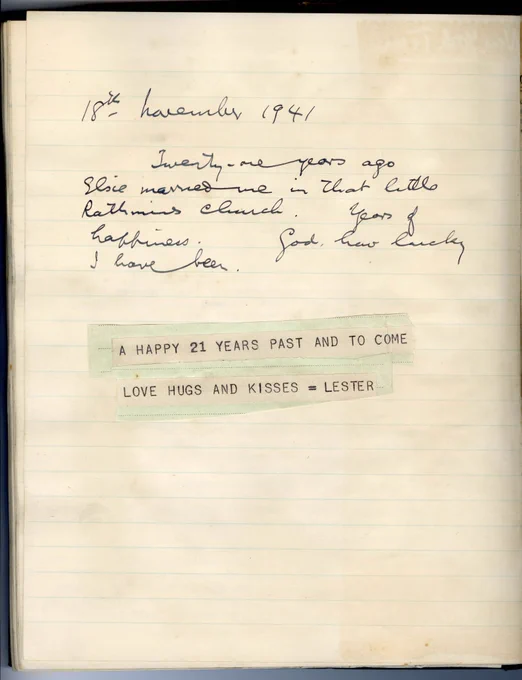 18th November 1941
Twenty-one years ago
Elsie married me in that little
Rathmines church. Years of
happiness. God, how lucky
I have been.
A HAPPY 21 YEARS PAST AND TO COME
LOVE HUGS AND KISSES = LESTER